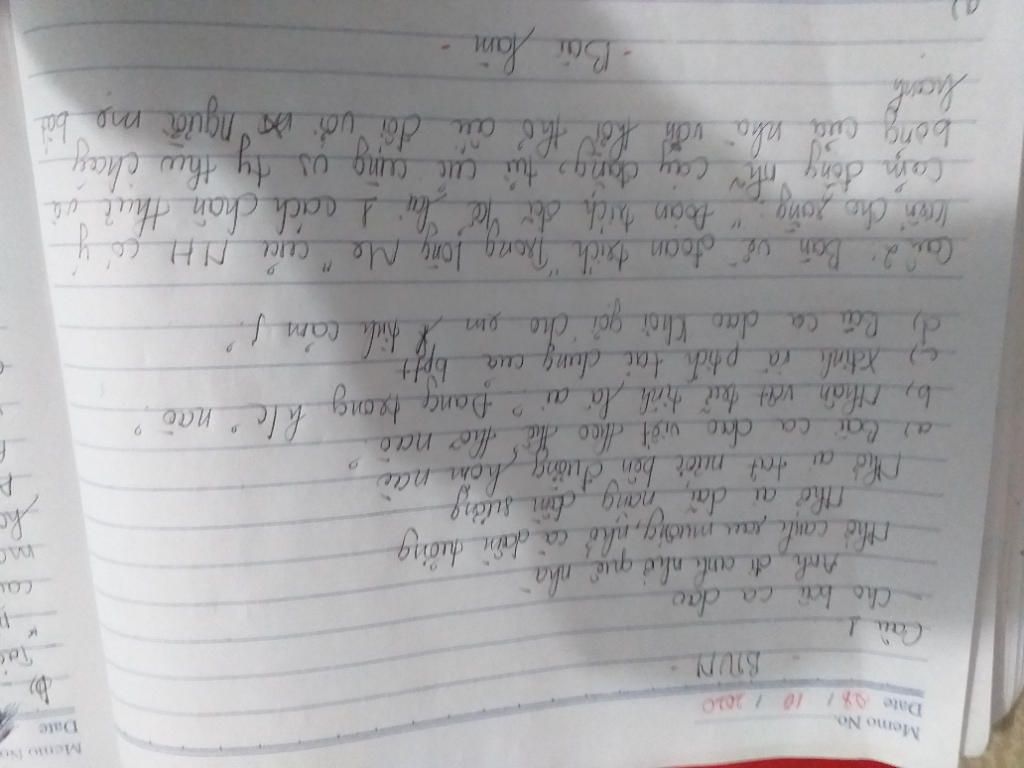 Memo No.
Date 28 / 10 / 2020
- BTVN -
Câu 1
Cho bài ca dao
Anh đi anh nhớ quê nhà
Nhớ canh rau muống, nhớ cà dầm tương
Nhớ ai dãi nắng dầm sương
Nhớ ai tát nước bên đường hôm nao
a) Bài ca dao viết theo thể thơ nào.
b, Nhân vật trữ tình là ai? Đang trong h/c nào?
c) Xđịnh và ptích tác dụng của bptt
d) Bài ca dao khơi gợi cho em tình cảm j?
Câu 2: Bàn về đoạn trích "Trong lòng Mẹ" của NH có ý
kiến cho rằng: "Đoạn trích đã kể lại 1 cách chân thực và
cảm động cay đắng, tủi cực cùng vs ty thương cháy
bỏng của nhà văn thời thơ ấu đối với người mẹ bất
hạnh
- Bài làm -
a)
Memo No.
Date